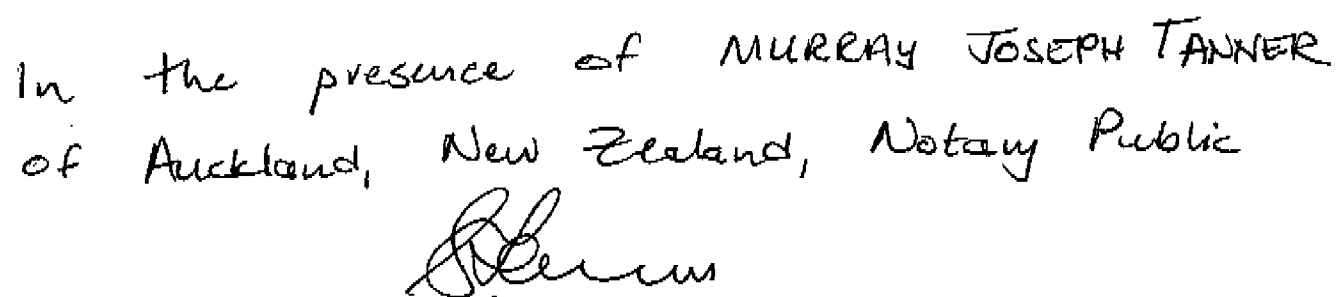 In the presence of MURRAY JOSEPH TANNER
of Auckland, New Zealand, Notary Public